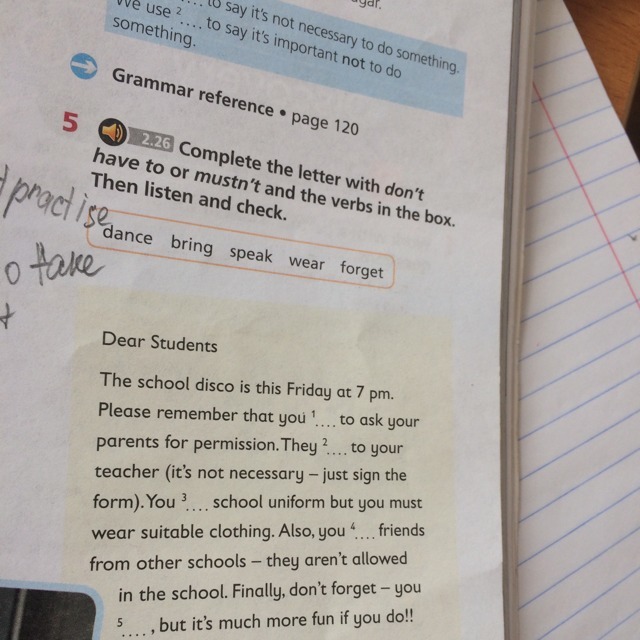 to say it's not necessary to do something.
We use 2.... to say it's important not to do
something.
Grammar reference • page 120
5 2.26 Complete the letter with don't
have to or mustn't and the verbs in the box.
Then listen and check.
practise
take
dance bring speak wear forget
Dear Students
The school disco is this Friday at 7 pm.
Please remember that you 1.... to ask your
parents for permission. They 2.... to your
teacher (it's not necessary – just sign the
form). You 3.... school uniform but you must
wear suitable clothing. Also, you 4.... friends
from other schools – they aren't allowed
in the school. Finally, don't forget – you
5...., but it's much more fun if you do!!